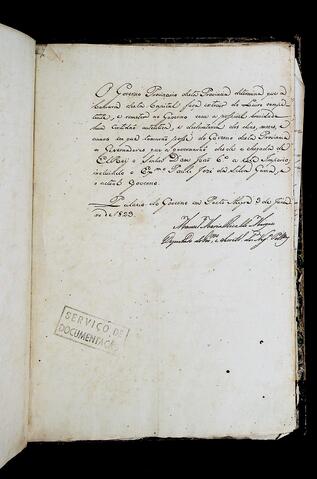 O Governo Provisorio desta Provincia determina que a
Camara desta Capital faça extrair do Livro compe
tente, e remetter ao Governo com a possivel brevidade
huma Certidão authentica, e declaratoria dos dias, mezes, e
annos em que tomarão posse do Governo desta Provincia
os Governadores que a governarão desde a chegada de
ElRei o Senhor Dom João 6º a este Imperio,
incluindo o Exmo Paulo José da Silva Gama, e
o actual Governo.
Palacio do Governo em Porto Alegre 9 de Janei
ro de 1823.
Manoel Maria
SERVIÇO DE
DOCUMENTAÇÃO